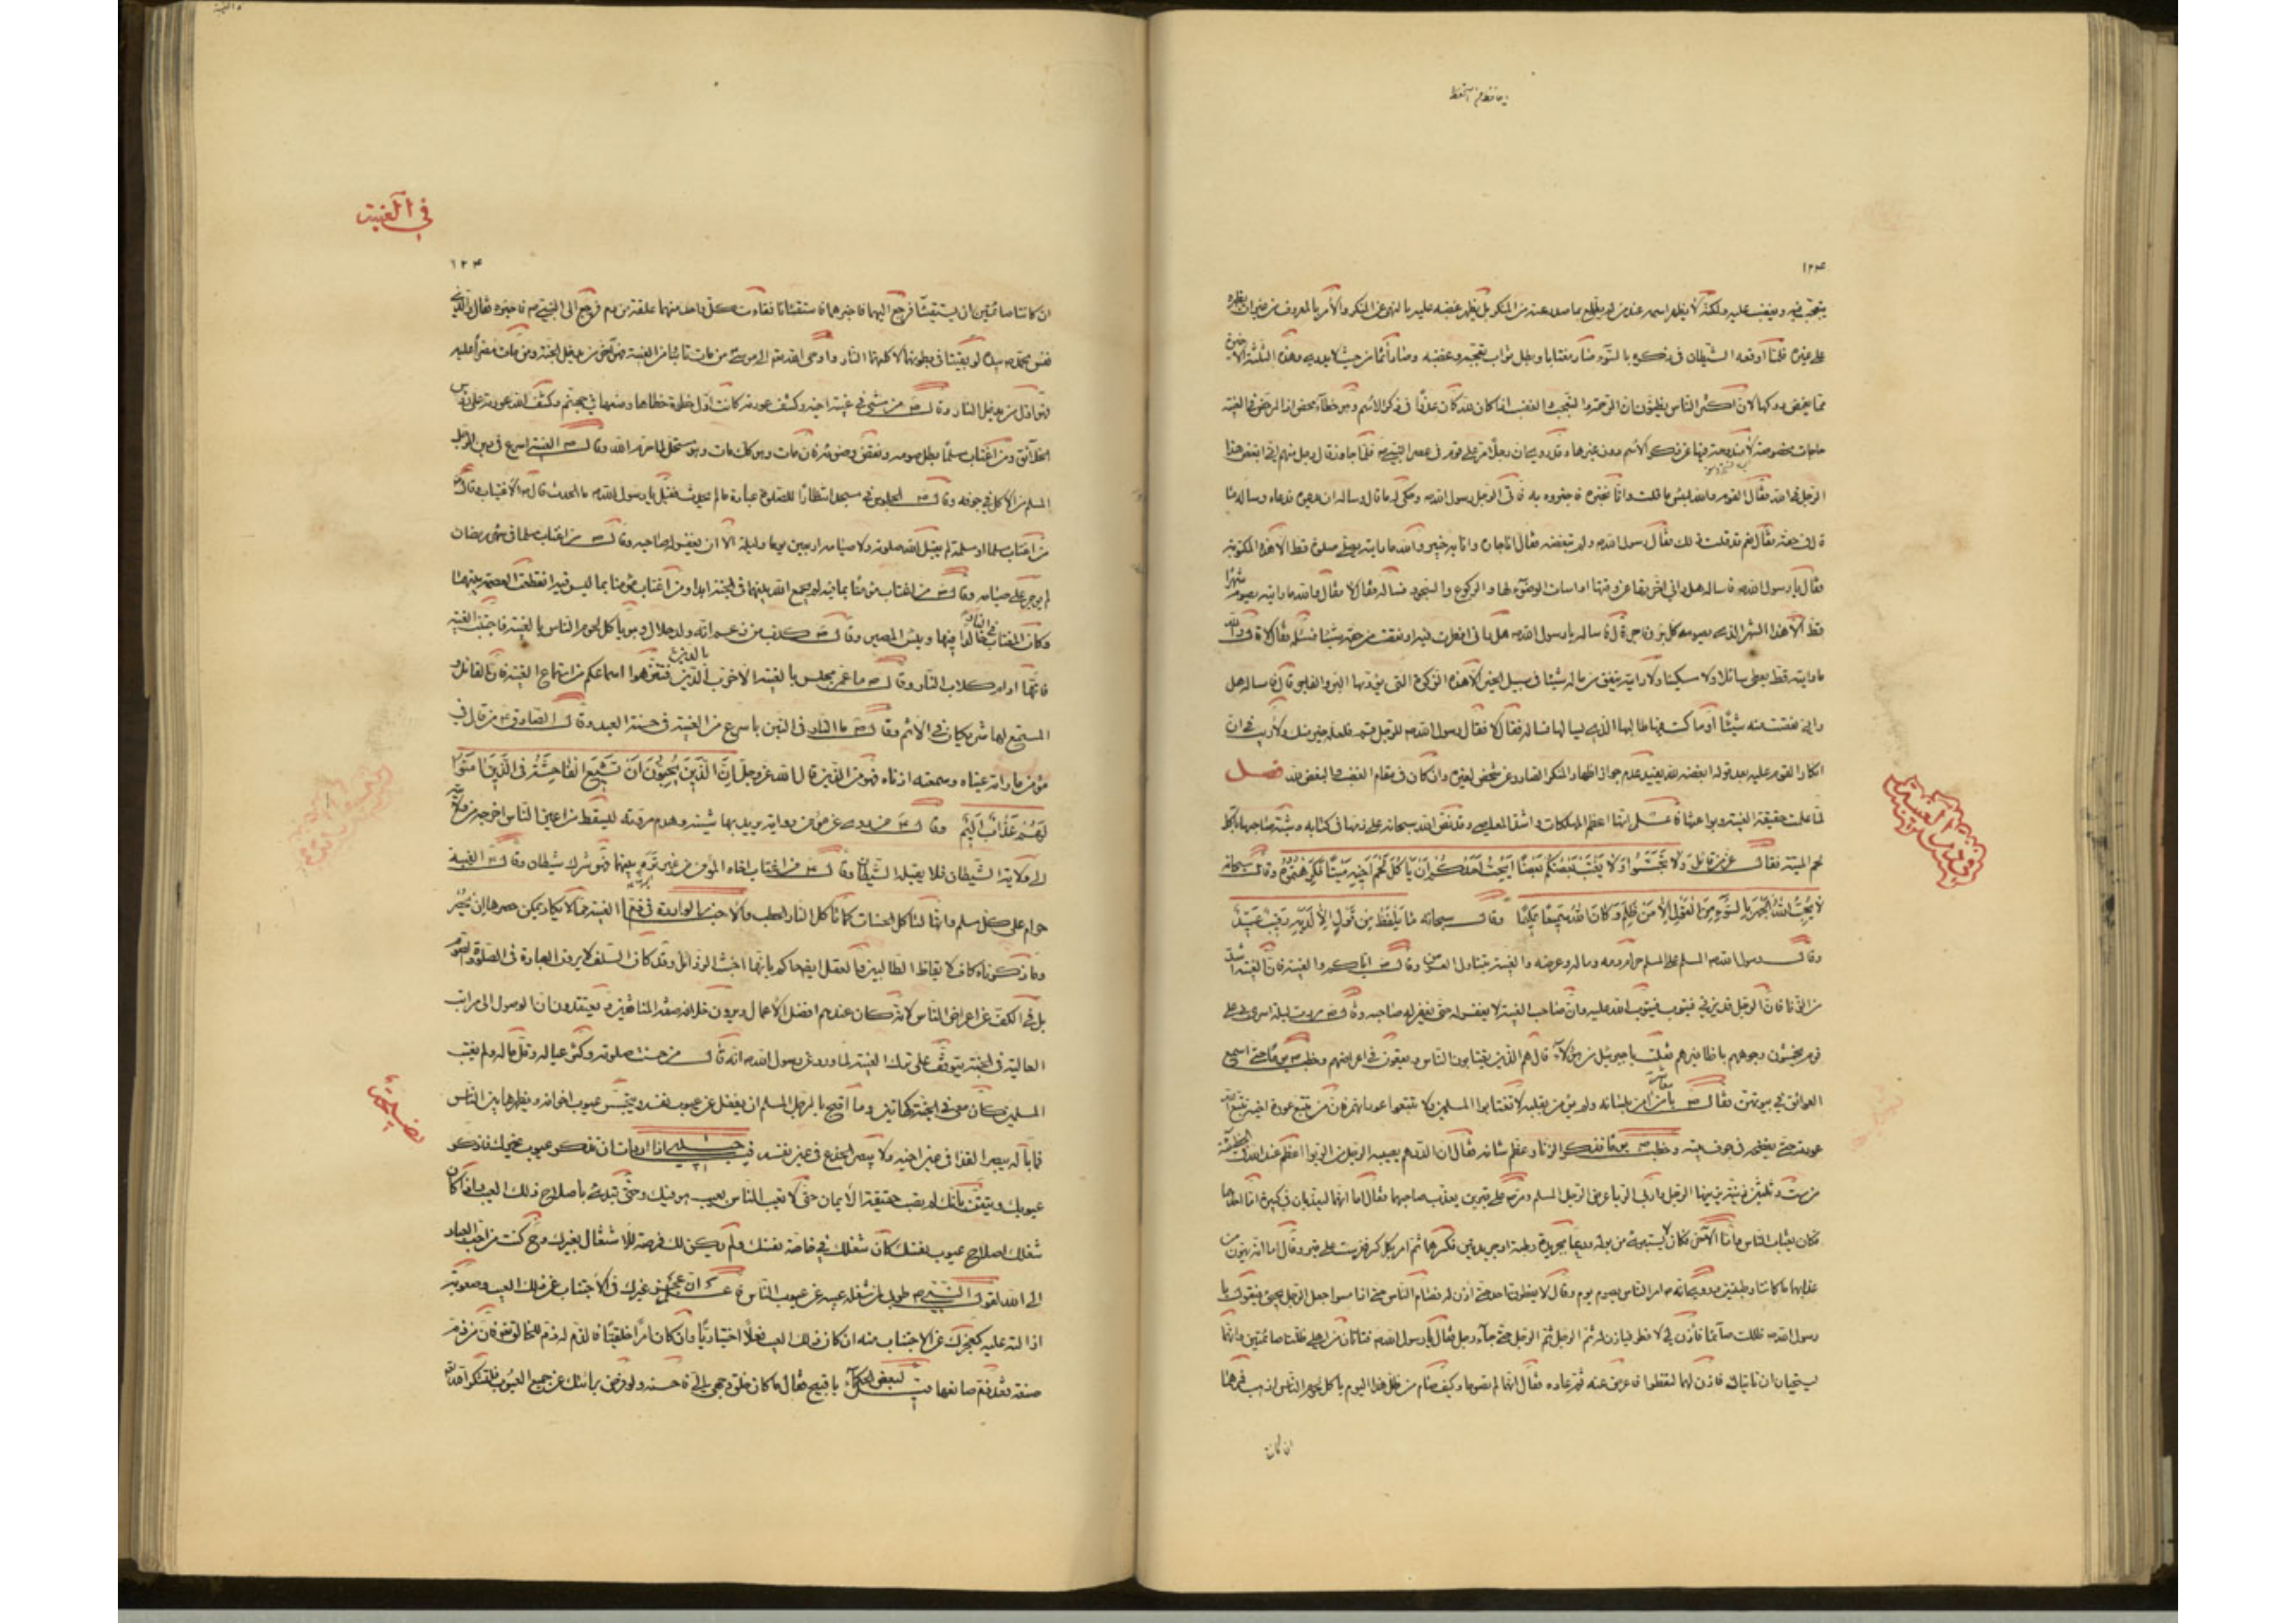 يا حافظ من احتفظ
١٢٣
يتعجب منه ويغضب عليه ولكنه لا يظهر اسمه عند من لم يطلع بما صدر عنه من المنكر بل يظهر غضبه عليه بالنهي عن المنكر والأمر بالمعروف من غير ان يظهره
على غيره فلما أوقعه الشيطان في ذكره بالسوء صار مغتابا وبطل ثواب تعجبه وغضبه وصار آثما من حيث لا يدري وهذه الثلثة الأخيرة
مما يغمض دركها لان اكثر الناس يظنون ان الرحمة والتعجب والغضب اذا كان لله كان عذرا في ذكر الاسم وهو خطأ محض اذ المرخص في الغيبة
حاجات مخصوصة لا مندوحة فيها عن ذكر الأسم دون غيرها وقد روي ان رجلا مر على قوم في عصر النبي ص فلما جاوزهم قال رجل منهم اني ابغض هذا
الرجل في الله فقال القوم والله لبئس ما قلت وانا نخبره فاخبروه به فاتى الرجل رسول الله ص وحكى له ما قال وساله ان يدعوه فدعاه وساله
فقال نعم قد قلت ذلك فقال رسول الله ص ولم تبغضه فقال انا جاره وانا به خبير والله ما رايته يصلي صلوة قط الا هذه المكتوبة
فقال يا رسول الله فاساله هل راني اخرتها عن وقتها او اسات الوضوء لها والركوع والسجود فساله فقال لا فقال والله ما رايته يصوم شهرا
قط الا هذا الشهر الذي يصومه كل بر وفاجر قال فاساله يا رسول الله ص هل راني افطرت فيه او نقصت من حقه شيئا فسئله فقال لا قال والله
ما رايته قط يعطي سائلا ولا مسكينا ولا رايته ينفق من ماله شيئا في سبيل الخير الا هذه الزكوة التي يؤديها البر والفاجر قال فاساله هل
راني نقصت منه شيئا او ما كست فيها طالبها الذي يسالها فساله فقال لا فقال رسول الله ص للرجل قم فلعله خير منك ولا ريب في ان
انكار القوم عليه بعد قوله ابغضه لله يفيد عدم جواز اظهار المنكر الصادر عن شخص لغيره وان كان في مقام الغضب والبغض لله فصل
لما علمت حقيقة الغيبة وبواعثها فاعلم انها اعظم المهلكات واشد المعاصي وقد نص الله سبحانه على ذمها في كتابه وشبه صاحبها باكل
لحم الميتة فقال عز من قائل ولا تجسسوا ولا يغتب بعضكم بعضا ايحب احدكم ان ياكل لحم اخيه ميتا فكرهتموه وقال سبحانه
لا يحب الله الجهر بالسوء من القول الا من ظلم وكان الله سميعا عليما وقال سبحانه ما يلفظ من قول الا لديه رقيب عتيد
وقال رسول الله ص المسلم على المسلم حرام دمه وماله وعرضه والغيبة تتناول العرض وقال ص اياكم والغيبة فان الغيبة اشد
من الزنا فان الرجل قد يزني فيتوب فيتوب الله عليه وان صاحب الغيبة لا يغفر له حتى يغفر له صاحبه وقال ص مررت ليلة اسري بي على
قوم يخمشون وجوههم باظافيرهم فقلت يا جبرئيل من هؤلاء قال هم الذين يغتابون الناس ويقعون في اعراضهم وخطب ص يوما حتى اسمع
العواتق في بيوتهن فقال ص يا معشر من امن بلسانه ولم يؤمن بقلبه لا تغتابوا المسلمين ولا تتبعوا عوراتهم فان من تتبع عورة اخيه تتبع الله
عورته حتى يفضحه في جوف بيته وخطب ص يوما فذكر الربا وعظم شانه فقال ان الدرهم يصيبه الرجل من الربوا اعظم عند الله في الخطيئة
من ست وثلثين زنية يزنيها الرجل وان اربى الربا عرض الرجل المسلم ومر ص على قبرين يعذب صاحبهما فقال اما انهما ليعذبان في كبيرة اما احدهما
فكان يغتاب الناس واما الاخر فكان لا يستبرئ من بوله ودعا بجريدة رطبة او جريدتين فكسرهما ثم امر بكل كسرة فغرست على قبر وقال اما انه يهون من
عذابهما ما كانتا رطبتين وروي انه ص امر الناس بصوم يوم وقال لا يفطرن احد حتى اذن له فصام الناس حتى اذا امسوا جعل الرجل يجئ فيقول يا
رسول الله ظللت صائما فأذن لي لافطر فياذن له ثم الرجل ثم الرجل حتى جاء رجل فقال يا رسول الله ص فتاتان من اهلي ظلتا صائمتين وانهما
يستحيان ان تاتياك فاذن لهما لتفطرا فاعرض عنه ثم عاوده فقال انهما لم تصوما وكيف صام من ظل هذا اليوم ياكل لحوم الناس اذهب فمرهما
ان كانتا
في ذم الغيبة
في الغيبة
١٢٤
ان كانتا صائمتين ان يستقيئا فرجع اليهما فاخبرهما فاستقائتا فقاءت كل واحدة منهما علقة من دم فرجع الى النبي ص فاخبره فقال والذي
نفس محمد بيده لو بقيتا في بطونهما لاكلتهما النار واوحى الله تع الى موسى من مات تائبا من الغيبة فهو اخر من يدخل الجنة ومن مات مصرا عليه
فهو اول من يدخل النار وقال ص من مشى في غيبة اخيه وكشف عورته كانت اول خطوة خطاها وضعها في جهنم وكشف الله عورته على رؤس
الخلائق ومن اغتاب مسلما بطل صومه ونقض وضوءه فان مات وهو كك مات وهو مستحل لما حرم الله وقال ص الغيبة اسرع في دين الرجل
المسلم من الاكلة في جوفه وقال ص الجلوس في مسجد انتظارا للصلوة عبادة ما لم يحدث فقيل يا رسول الله ص ما الحدث قال ص الاغتياب وقال ص
من اغتاب مسلما او مسلمة لم يقبل الله صلوته ولا صيامه اربعين يوما وليلة الا ان يغفر له صاحبه وقال ص من اغتاب مسلما في شهر رمضان
لم يوجر على صيامه وقال ص من اغتاب مؤمنا بما فيه لم يجمع الله بينهما في الجنة ابدا ومن اغتاب مؤمنا بما ليس فيه انقطعت العصمة بينهما
وكان المغتاب في النار خالدا فيها وبئس المصير وقال ص كذب من زعم انه ولد حلال وهو ياكل لحوم الناس بالغيبة فاجتنب الغيبة
فانها ادام كلاب النار وقال ص ما عمر مجلس بالغيبة الا خرب بالدين فنزهوا اسماعكم من استماع الغيبة فان القائل و
المستمع لها شريكان في الاثم وقال ص ما النار في التبن باسرع من الغيبة في حسنة العبد وقال الصادق ع من قال في
مؤمن ما راته عيناه وسمعته اذناه فهو من الذين قال الله عز وجل ان الذين يحبون ان تشيع الفاحشة في الذين امنوا
لهم عذاب اليم وقال ع من روى عن مؤمن رواية يريد بها شينه وهدم مروته ليسقط من اعين الناس اخرجه من ولايته
الى ولاية الشيطان فلا يقبله الشيطان وقال ع من اغتاب اخاه المؤمن من غير ترة بينهما فهو شرك شيطان وقال ع الغيبة
حرام على كل مسلم وانها لتاكل الحسنات كما تاكل النار الحطب والاخبار الواردة في ذم الغيبة مما لا يكاد يمكن حصرها
وما ذكرناه كاف لايقاظ الطالبين والعقل ايضا حاكم بانها اخبث الرذائل وقد كان السلف لا يرون العبادة في الصلوة والصوم
بل في الكف عن اعراض الناس لانه كان عندهم افضل الأعمال ويرون خلافه صفة المنافقين ويعتقدون ان الوصول الى مراتب
العالية في الجنة يتوقف على ترك الغيبة لما ورد عن رسول الله ص انه قال من حسنت صلوته وكثر عياله وقل ماله ولم يغتب
المسلمين كان معي في الجنة كهاتين وما اقبح بالرجل المسلم ان يغفل عن عيوب نفسه ويتجسس عيوب اخوانه ويظهرها بين الناس
فما باله يبصر القذا في عين اخيه ولا يبصر الجذع في عين نفسه فيا حبيبي اذا اردت ان تذكر عيوب غيرك فاذكر
عيوبك وتيقن بانك لم تصب حقيقة الأيمان حتى لا تعيب الناس بعيب هو فيك وحتى تبدء باصلاح ذلك العيب واذا كان
شغلك اصلاح عيوب نفسك كان شغلك في خاصة نفسك ولم يكن لك فرصة للاشتغال بغيرك وح كنت من احب العباد
الى الله لقول النبي ص طوبى لمن شغله عيبه عن عيوب الناس واعلم ان عجز غيرك في الاجتناب عن ذلك العيب وصعوبة
ازالته عليه كعجزك عن الاجتناب منه ان كان ذلك العيب فعلا اختياريا وان كان امرا خلقيا فالذم له ذم للخالق فان من ذم
صنعة فقد ذم صانعها قيل لبعض الحكماء يا قبيح فقال ما كان خلق وجهي الي فاحسنه ولو فرض برائتك عن جميع العيوب فلتشكر الله
نصيحة